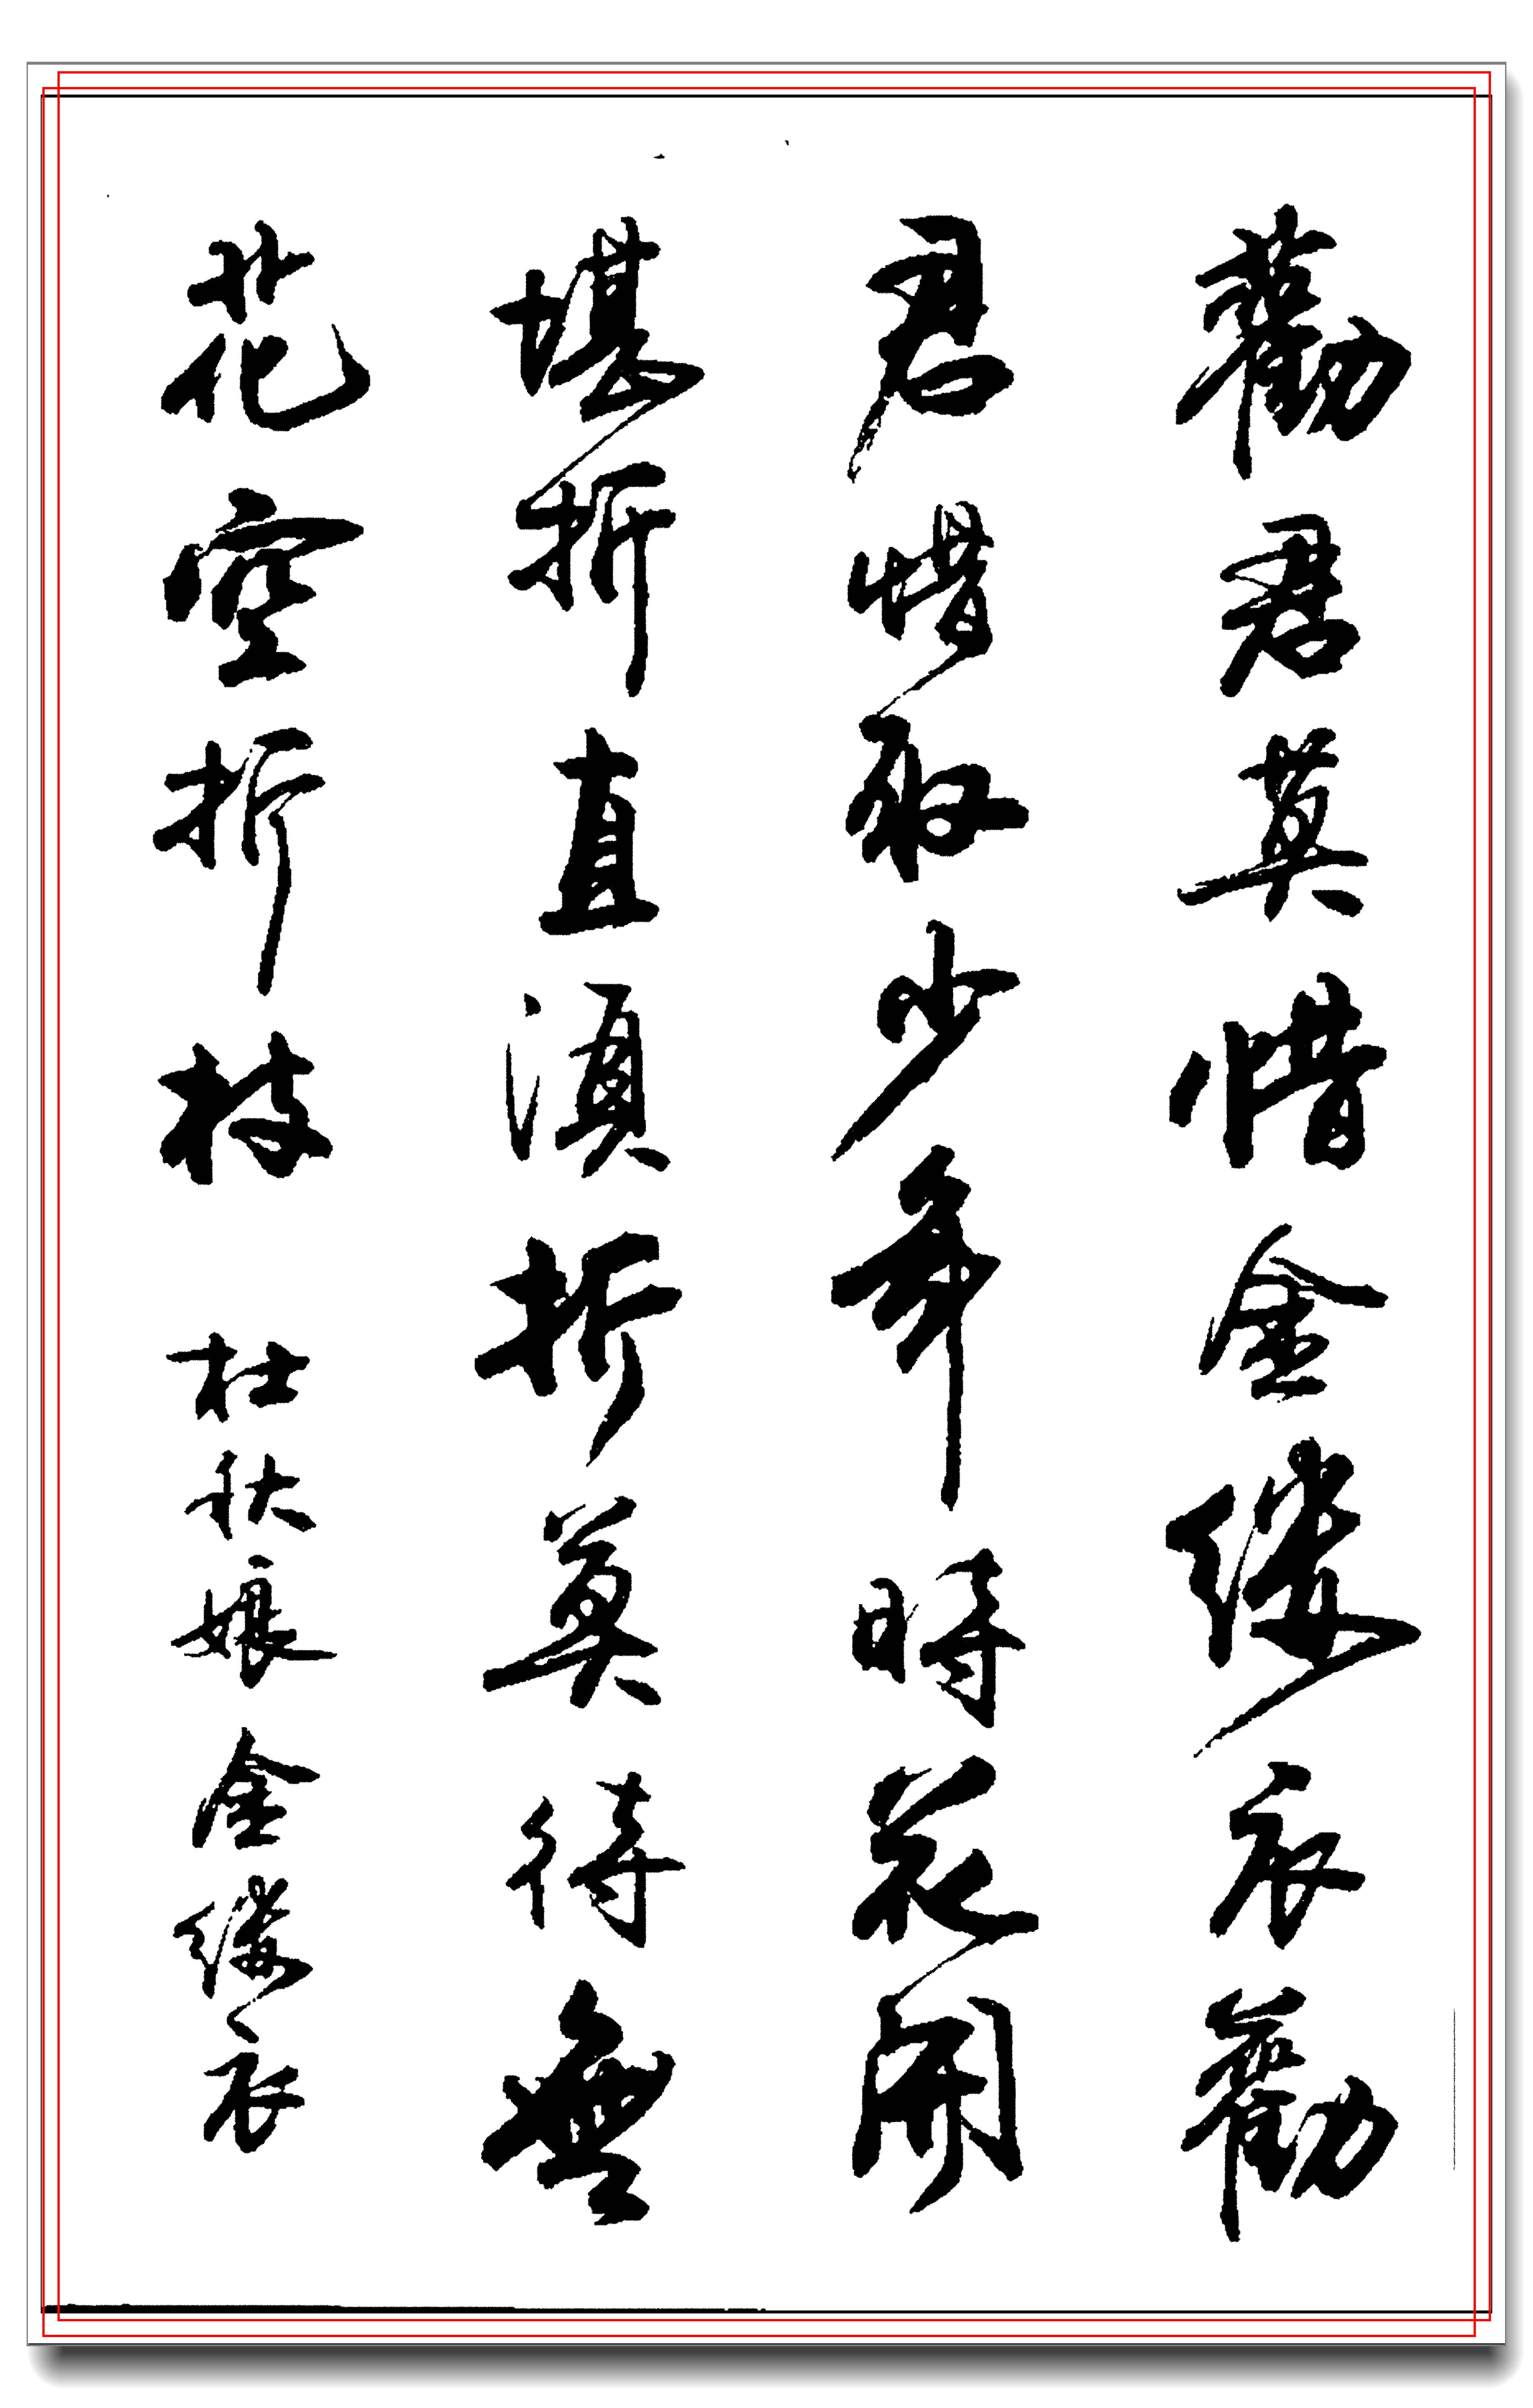 勸君莫惜金縷衣勸
君惜取少年時花開
堪折直須折莫待無
花空折枝 杜秋娘金縷衣